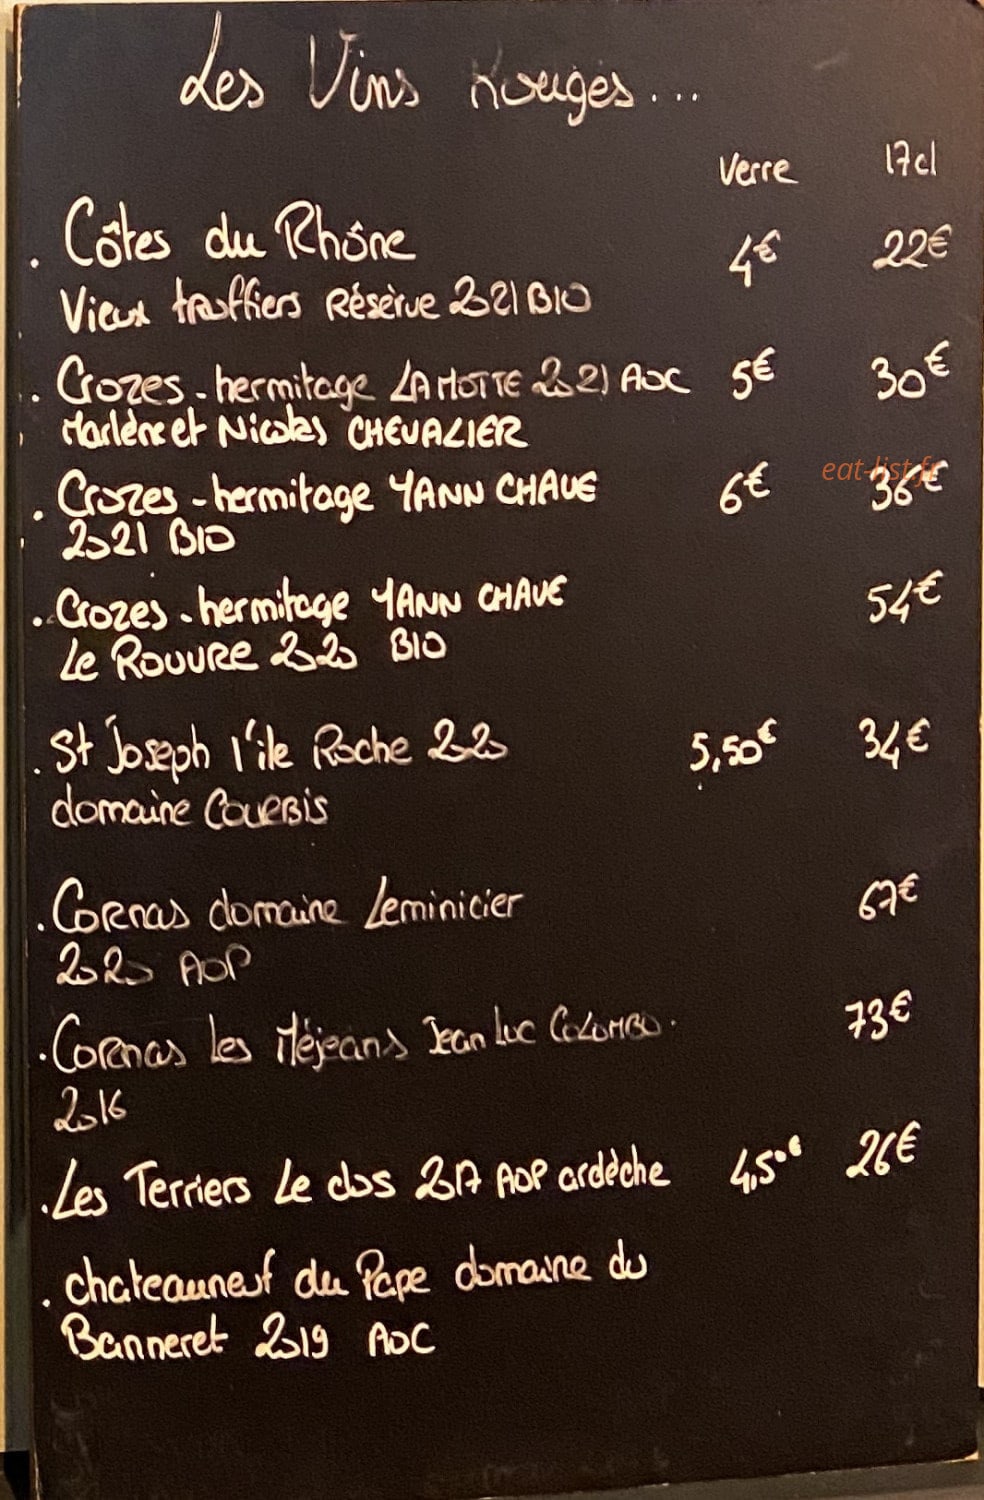 Les Vins Rouges...
Verre 17cl
. Côtes du Rhône 4€ 22€
Vieux truffiers Réserve 2021 BIO
. Crozes-hermitage LA MOTTE 2021 AOC 5€ 30€
Marlène et Nicolas CHEVALIER
eat-list.fr
. Crozes-hermitage YANN CHAVE 6€ 36€
2021 BIO
. Crozes-hermitage YANN CHAVE 54€
Le ROUVRE 2020 BIO
. St Joseph l'île Roche 2020 5,50€ 34€
domaine COURBIS
. Cornas domaine Leminicier 67€
2020 AOP
. Cornas les Méjeans Jean Luc COLOMBO. 73€
2016
. Les Terriers Le clos 2017 AOP ardèche 4,50€ 26€
. chateauneuf du Pape domaine du
Banneret 2019 AOC